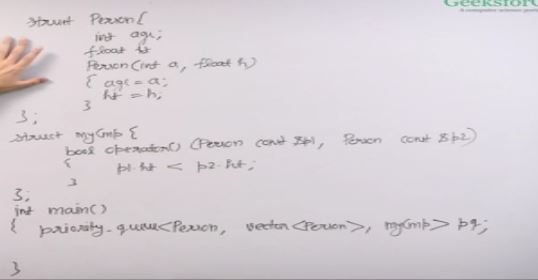 GeeksforG
A computer science port
struct Person{
int age;
float ht
Person(int a, float h)
{ age = a;
ht = h;
}
};
struct myCmp {
bool operator() (Person const &p1, Person const &p2)
{ p1.ht < p2.ht;
}
};
int main()
{ priority_queue<Person, vector<Person>, myCmp> pq;
}